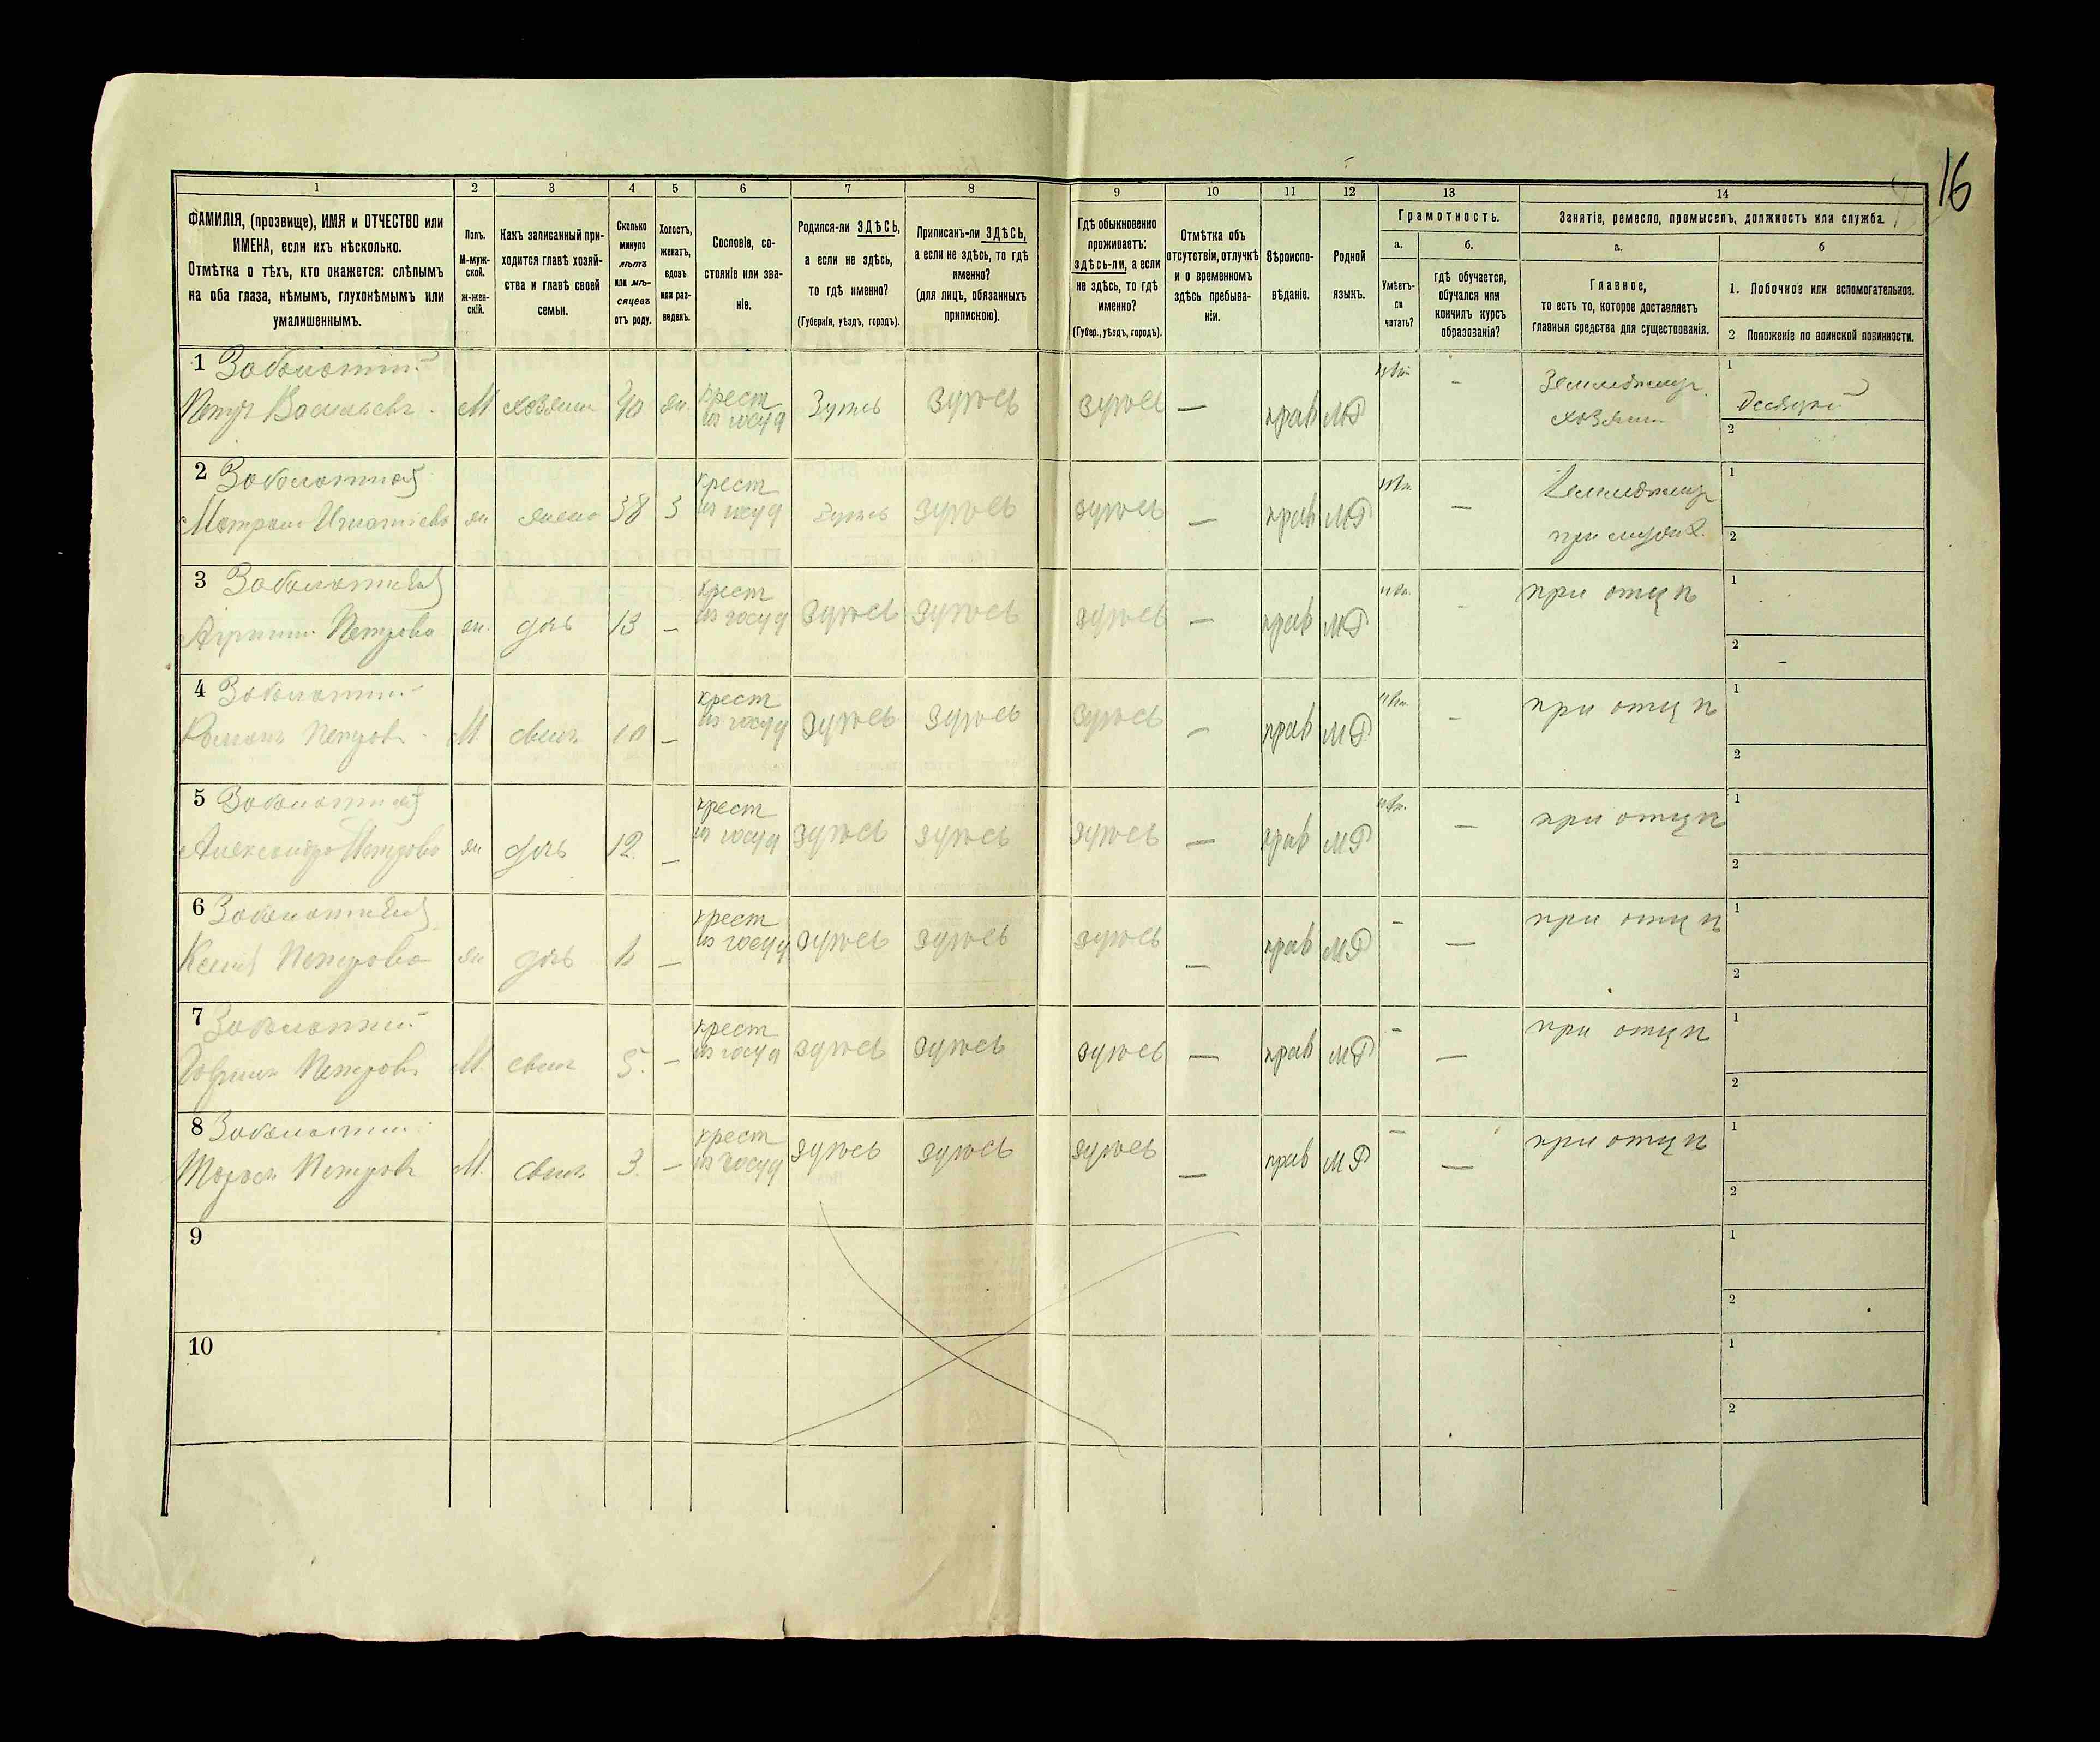 16
1 2 3 4 5 6 7 8 9 10 11 12 13 14
ФАМИЛІЯ, (прозвище), ИМЯ и ОТЧЕСТВО или
ИМЕНА, если ихъ нѣсколько.
Отмѣтка о тѣхъ, кто окажется: слѣпымъ
на оба глаза, нѣмымъ, глухонѣмымъ или
умалишеннымъ.
Полъ.
М-муж-
ской.
ж-жен-
скій.
Какъ записанный при-
ходится главѣ хозяй-
ства и главѣ своей
семьи.
Сколько
минуло
лѣтъ
или мѣ-
сяцевъ
отъ роду.
Холостъ,
женатъ,
вдовъ
или раз-
веденъ.
Сословіе, со-
стояніе или зва-
ніе.
Родился-ли ЗДѢСЬ,
а если не здѣсь,
то гдѣ именно?
(Губернія, уѣздъ, городъ).
Приписанъ-ли ЗДѢСЬ,
а если не здѣсь, то гдѣ
именно?
(для лицъ, обязанныхъ
припискою).
Гдѣ обыкновенно
проживаетъ:
здѣсь-ли, а если
не здѣсь, то гдѣ
именно?
(Губер., уѣздъ, городъ).
Отмѣтка объ
отсутствіи, отлучкѣ
и о временномъ
здѣсь пребыва-
ніи.
Вѣроиспо-
вѣданіе.
Родной
языкъ.
Грамотность.
а.
Умѣетъ-
ли
читать?
б.
гдѣ обучается,
обучался или
кончилъ курсъ
образованія?
Занятіе, ремесло, промыселъ, должность или служба.
а.
Главное,
то есть то, которое доставляетъ
главныя средства для существованія.
б
1. Побочное или вспомогательное.
2 Положеніе по воинской повинности.
1 Заболотній
Петръ Васильевъ М хозяинъ 40 ж. крест из госуд здѣсь здѣсь здѣсь — прав МР нѣт — земледѣлец хозяин 1 десяцкій
2
2 Заболотная
Матрона Игнатіева ж жена 38 з крест из госуд здѣсь здѣсь здѣсь — прав МР нѣт — земледѣлец при мужѣ 1
2
3 Заболотная
Петрова ж дочь 13 — крест из госуд здѣсь здѣсь здѣсь — прав МР нѣт — при отцѣ 1
2 –
4 Заболотній
Романъ Петровъ М сынъ 10 — крест из госуд здѣсь здѣсь здѣсь — прав МР нѣт — при отцѣ 1
2
5 Заболотная
Александра Петрова ж дочь 12 — крест из госуд здѣсь здѣсь здѣсь — прав МР нѣт — при отцѣ 1
2
6 Заболотная
Ксенія Петрова ж дочь — крест из госуд здѣсь здѣсь здѣсь — прав МР — — при отцѣ 1
2
7 Заболотній
Петровъ М сынъ 5 — крест из госуд здѣсь здѣсь здѣсь — прав МР — — при отцѣ 1
2
8 Заболотній
Тарасъ Петровъ М сынъ 3 — крест из госуд здѣсь здѣсь здѣсь — прав МР — — при отцѣ 1
2
9 1
2
10 1
2